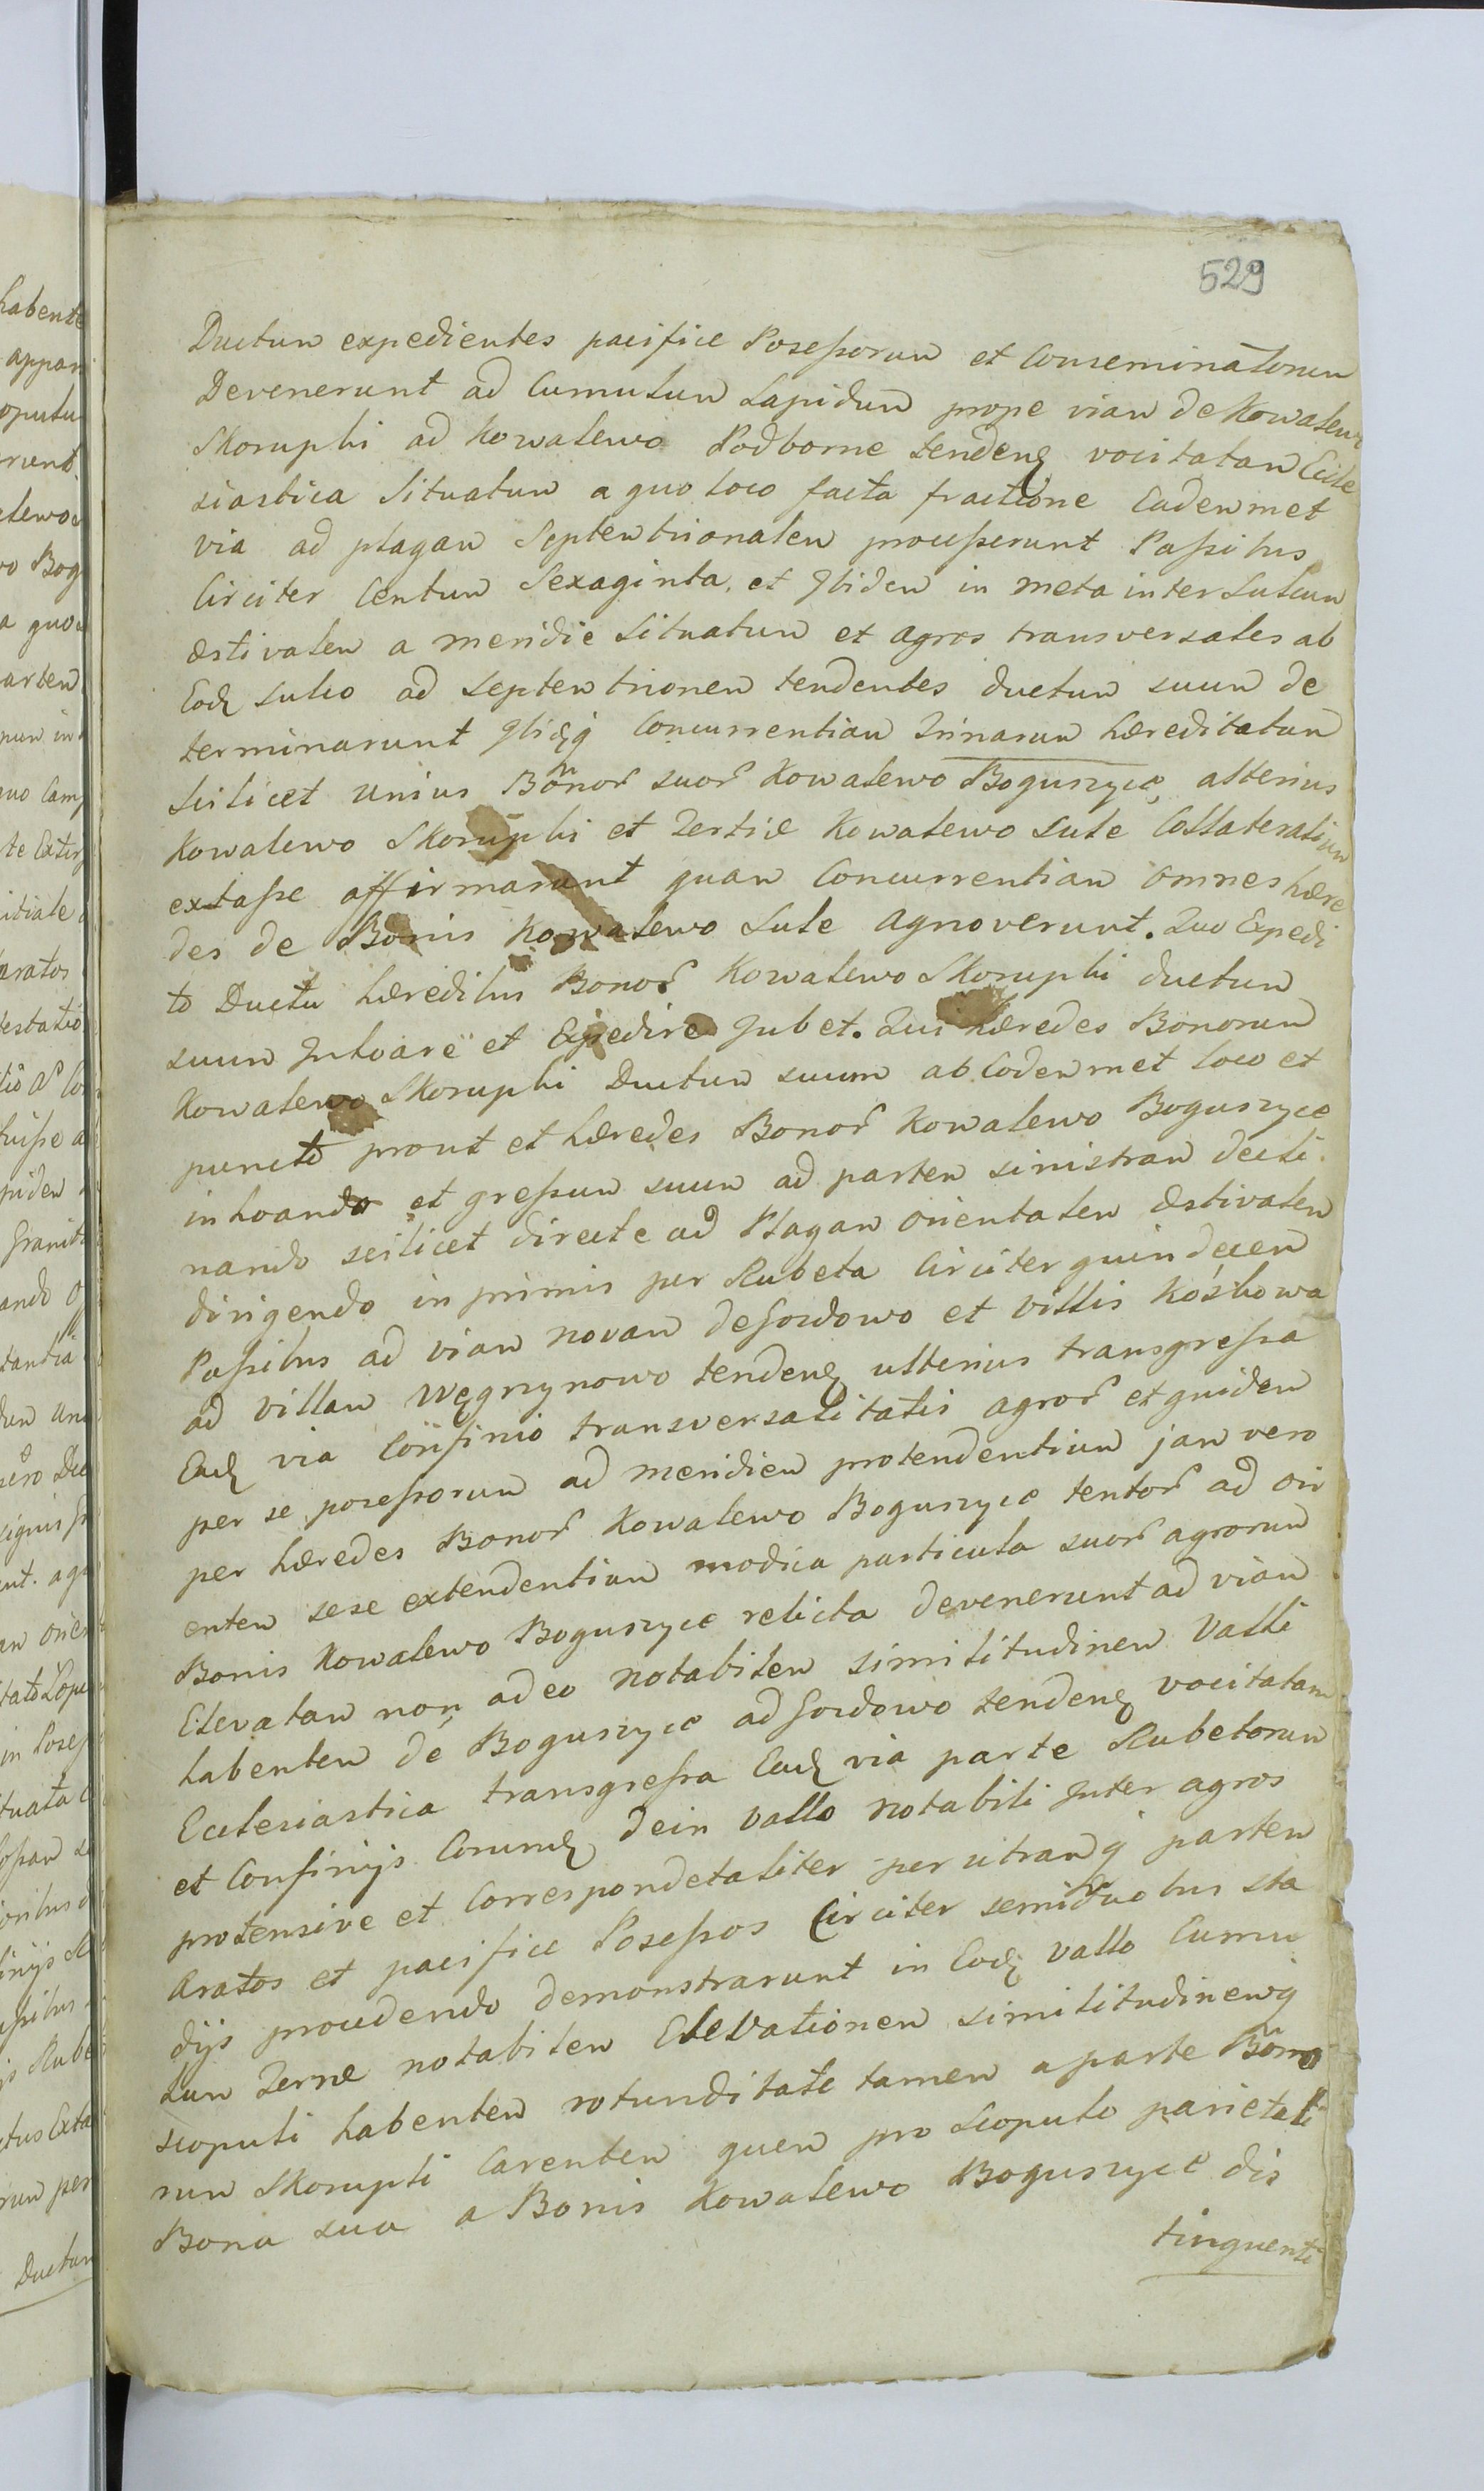 529
Ductum expedientes pacifice Poseſsorum et Conseminatorum
Devenerunt ad Cumulum Lapidum prope viam de Kowalewo
Skorupki ad Kowalewo Podborne tendenꝫ vocitatam Eccle
siastica Situatum a quo loco facta fractione Eademmet
via ad plagam Septemtrionalem proceſserunt Paſsibus
Circiter Centum Sexaginta, et Ibidem in meta inter Sulcum
æstivalem a meridie Situatum et Agros transversales ab
Eodꝫ sulco ad septemtrionem tendentes ductum suum de
terminarunt Ibidꝫq̃ Concurrentiam Trinarum hæreditatum
Scilicet unius Bonor̃ suor̃ Kowalewo Boguszyce, alterius
Kowalewo Skorupki et Tertiæ Kowalewo Sule Collateralium
extaſse affirmarunt quam Concurrentiam omnes hære
des de Bonis Kowalewo Sule Agnoverunt. Quo Expedi
to Ductu hæredibus Bonor̃ Kowalewo Skorupki ductum
suum Inhoare et Expedire Jubet. Qui hæredes Bonorum
Kowalewo Skorupki Ductum suum ab Eodemmet loco et
puncto prout et hæredes Bonor̃ Kowalewo Boguszyce
inhoando et greſsum suum ad partem sinistram decli
nando scilicet directe ad Plagam orientalem Æstivalem
dirigendo in primis per Rubeta Circiter quindecem
Paſsibus ad viam novam de Gordowo et villis Kóźkowa
ad villam Węgrzynowo tendenꝫ ulterius transgreſsa
Eadꝫ via Confinio transversalitatis agror̃ et quidem
per se poseſsorum ad meridiem protendentium jam vero
per hæredes Bonor̃ Kowalewo Boguszyce tentor̃ ad ori
entem sese extendentium modica particula suor̃ agrorum
Bonis Kowalewo Boguszyce relicta devenerunt ad viam
Elevatam non adeo notabilem similitudinem Valli
habentem de Boguszyce ad Gordowo tendenꝫ vocitatam
Ecclesiastica transgreſsa Eadꝫ via parte Rubetorum
et Confinijs Eorumdꝫ dein vallo notabili Inter agros
protensive et Correspondetaliter per utramq̃ partem
Aratos et pacifice Poseſsos Circiter semiduobus sta
dijs procedendo demonstrarunt in Eodꝫ vallo Cumu
lum Terræ notabilem Elevationem similitudinemq̃
scopuli habentem rotunditate tamen a parte Bono
rum Skorupki Carentem quem pro Scopulo parietali
Bona sua a Bonis Kowalewo Boguszyce dis
tinguenti